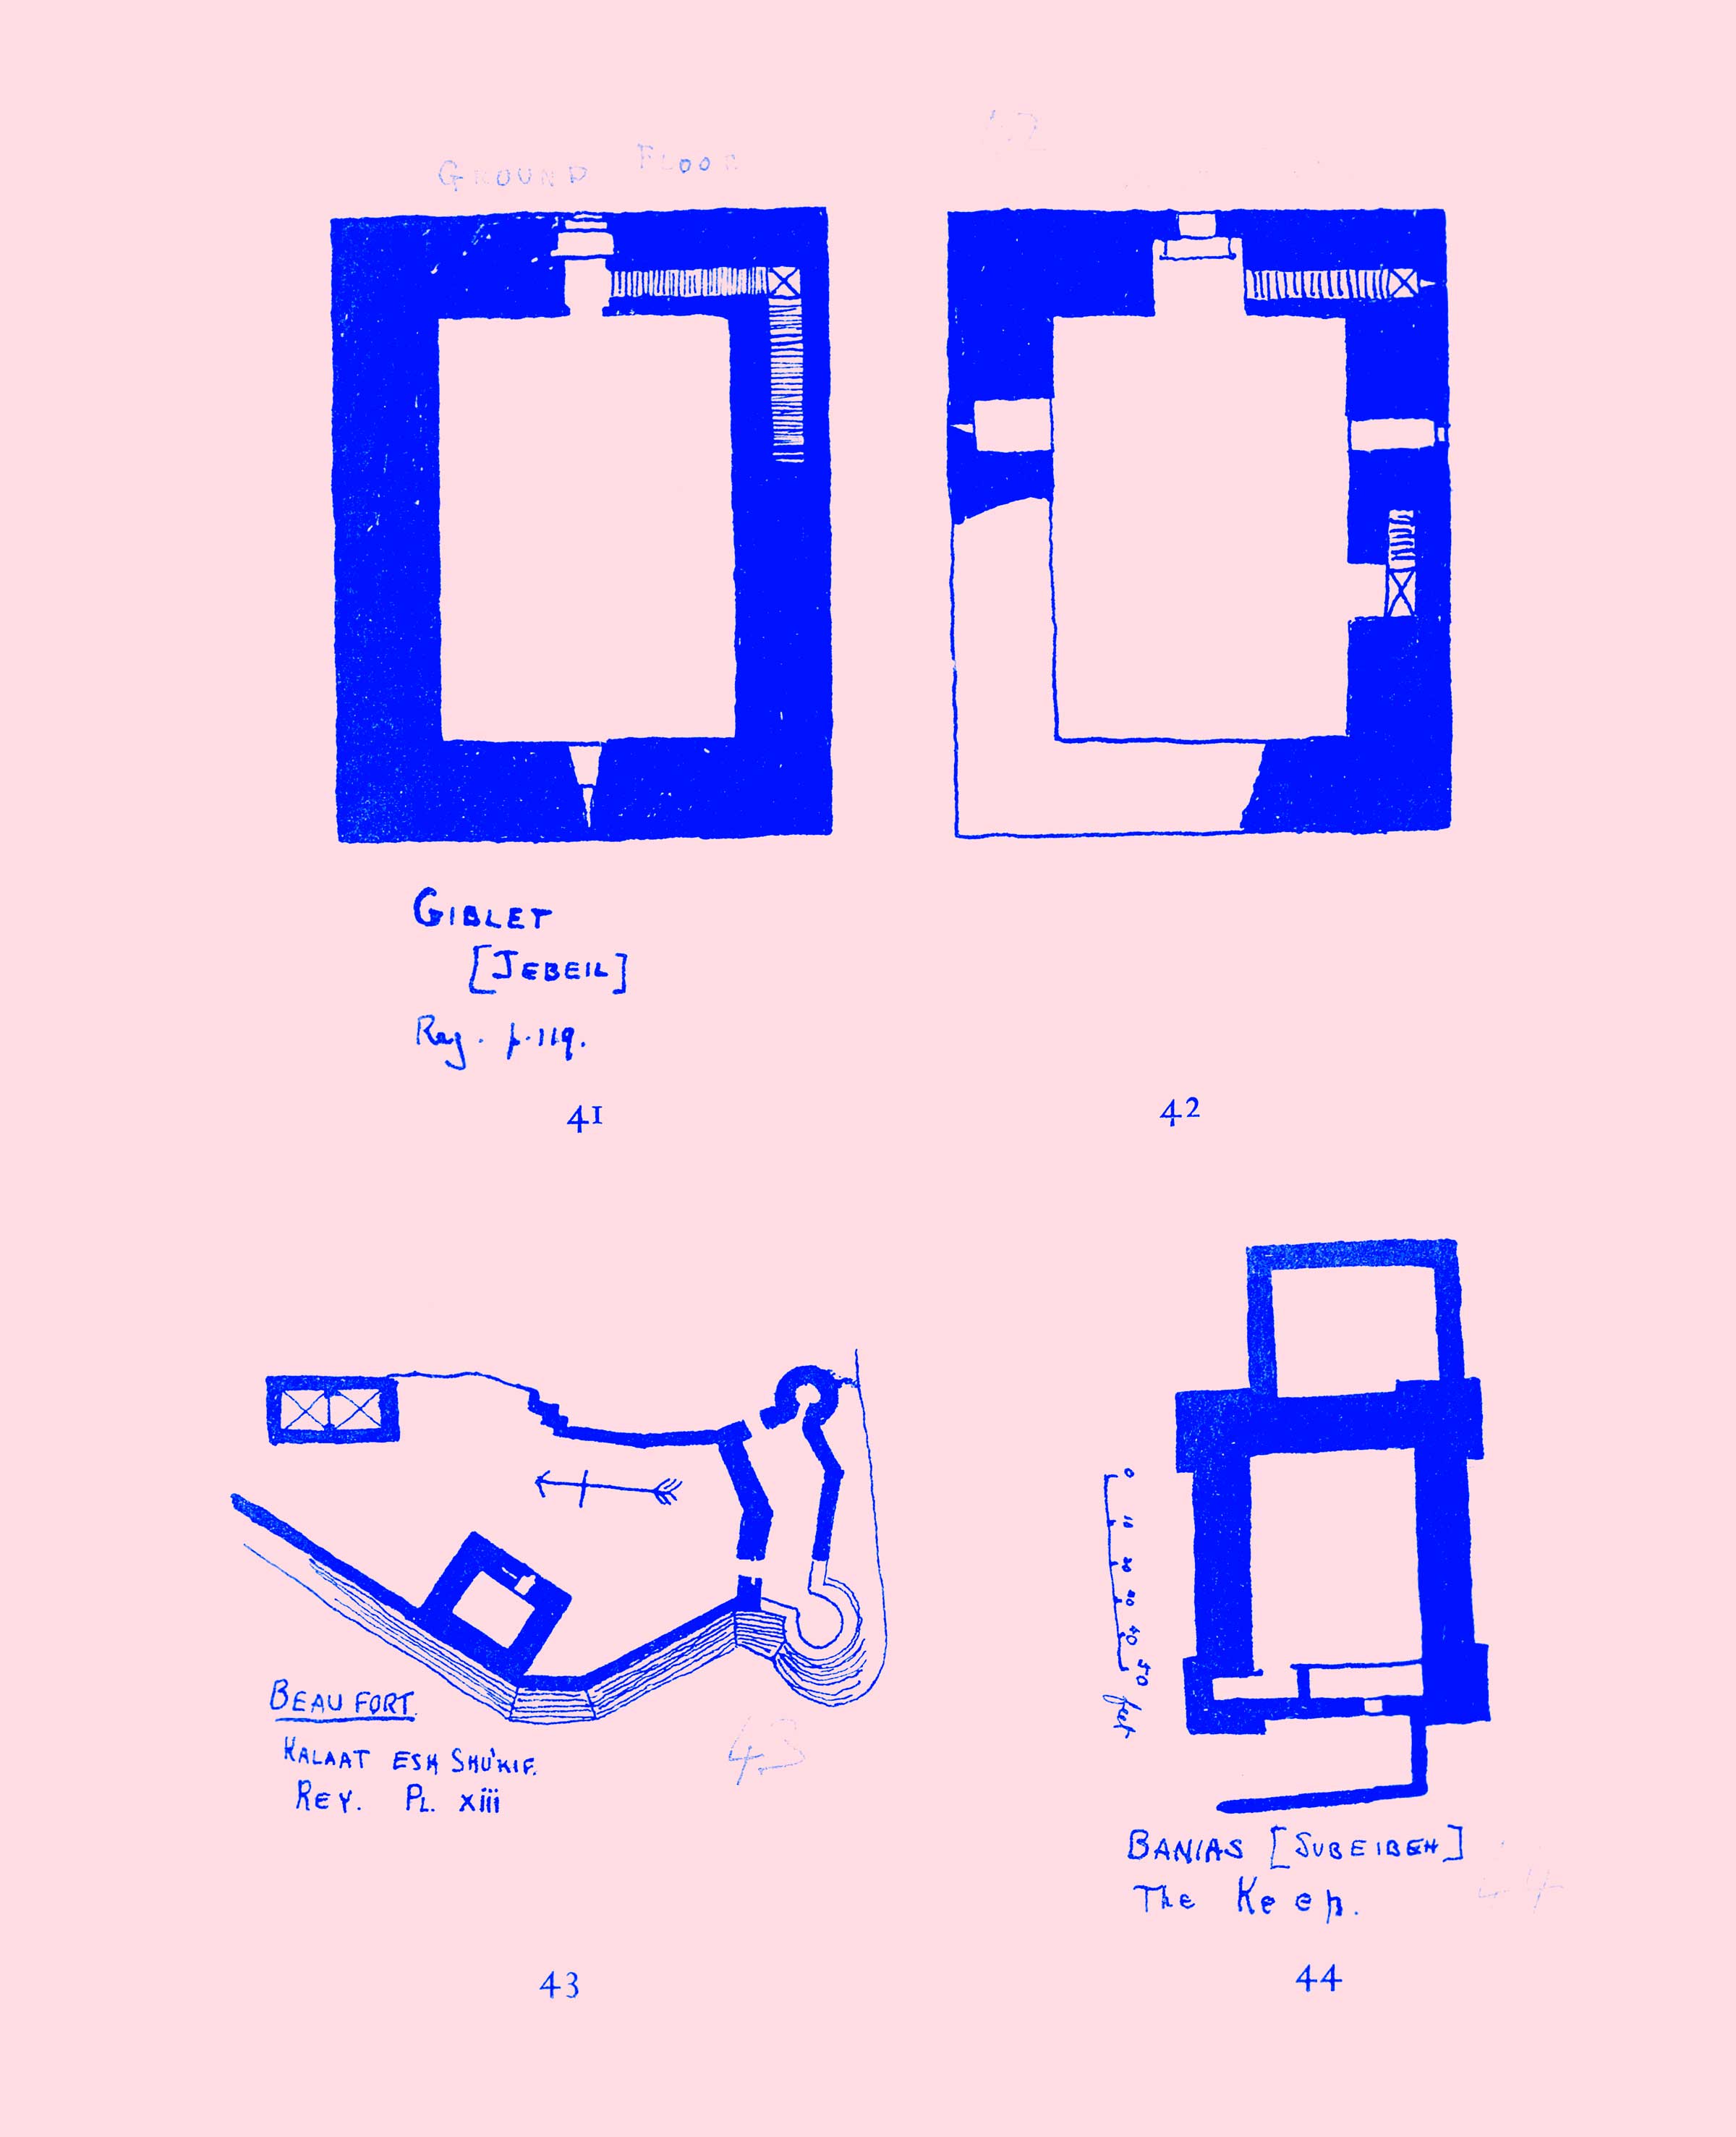 GROUND FLOOR
42
GIBLET
[JEBEIL]
Rey. p. 119.
41
42
BEAUFORT.
KALAAT ESH SHUKIF.
REY. PL. xiii
43
0 10 20 30 40 50 feet
BANIAS [SUBEIBEH]
The Keep.
44
43
44